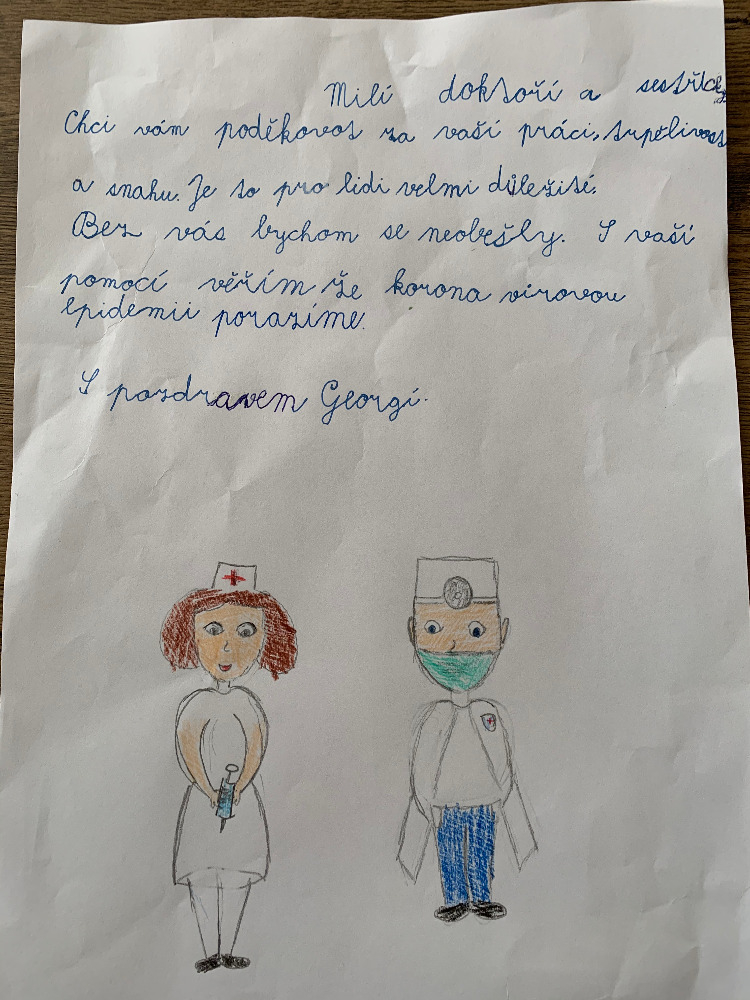 Milí doktoří a sestřičky
Chci vám poděkovat za vaší práci, trpělivost
a snahu. Je to pro lidi velmi důležité.
Bez vás bychom se neobešly. S vaší
pomocí věřím že korona virovou
epidemii porazíme.
S pozdravem Georgi.